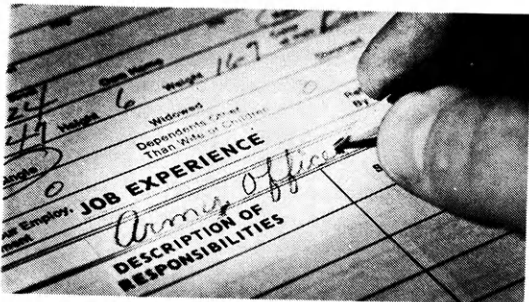 Own Home
24
47 Height 6 Weight 167
Single Widowed
0 Dependents Other 0
Than Wife or Children
Employ. JOB EXPERIENCE
Army Office
DESCRIPTION OF
RESPONSIBILITIES